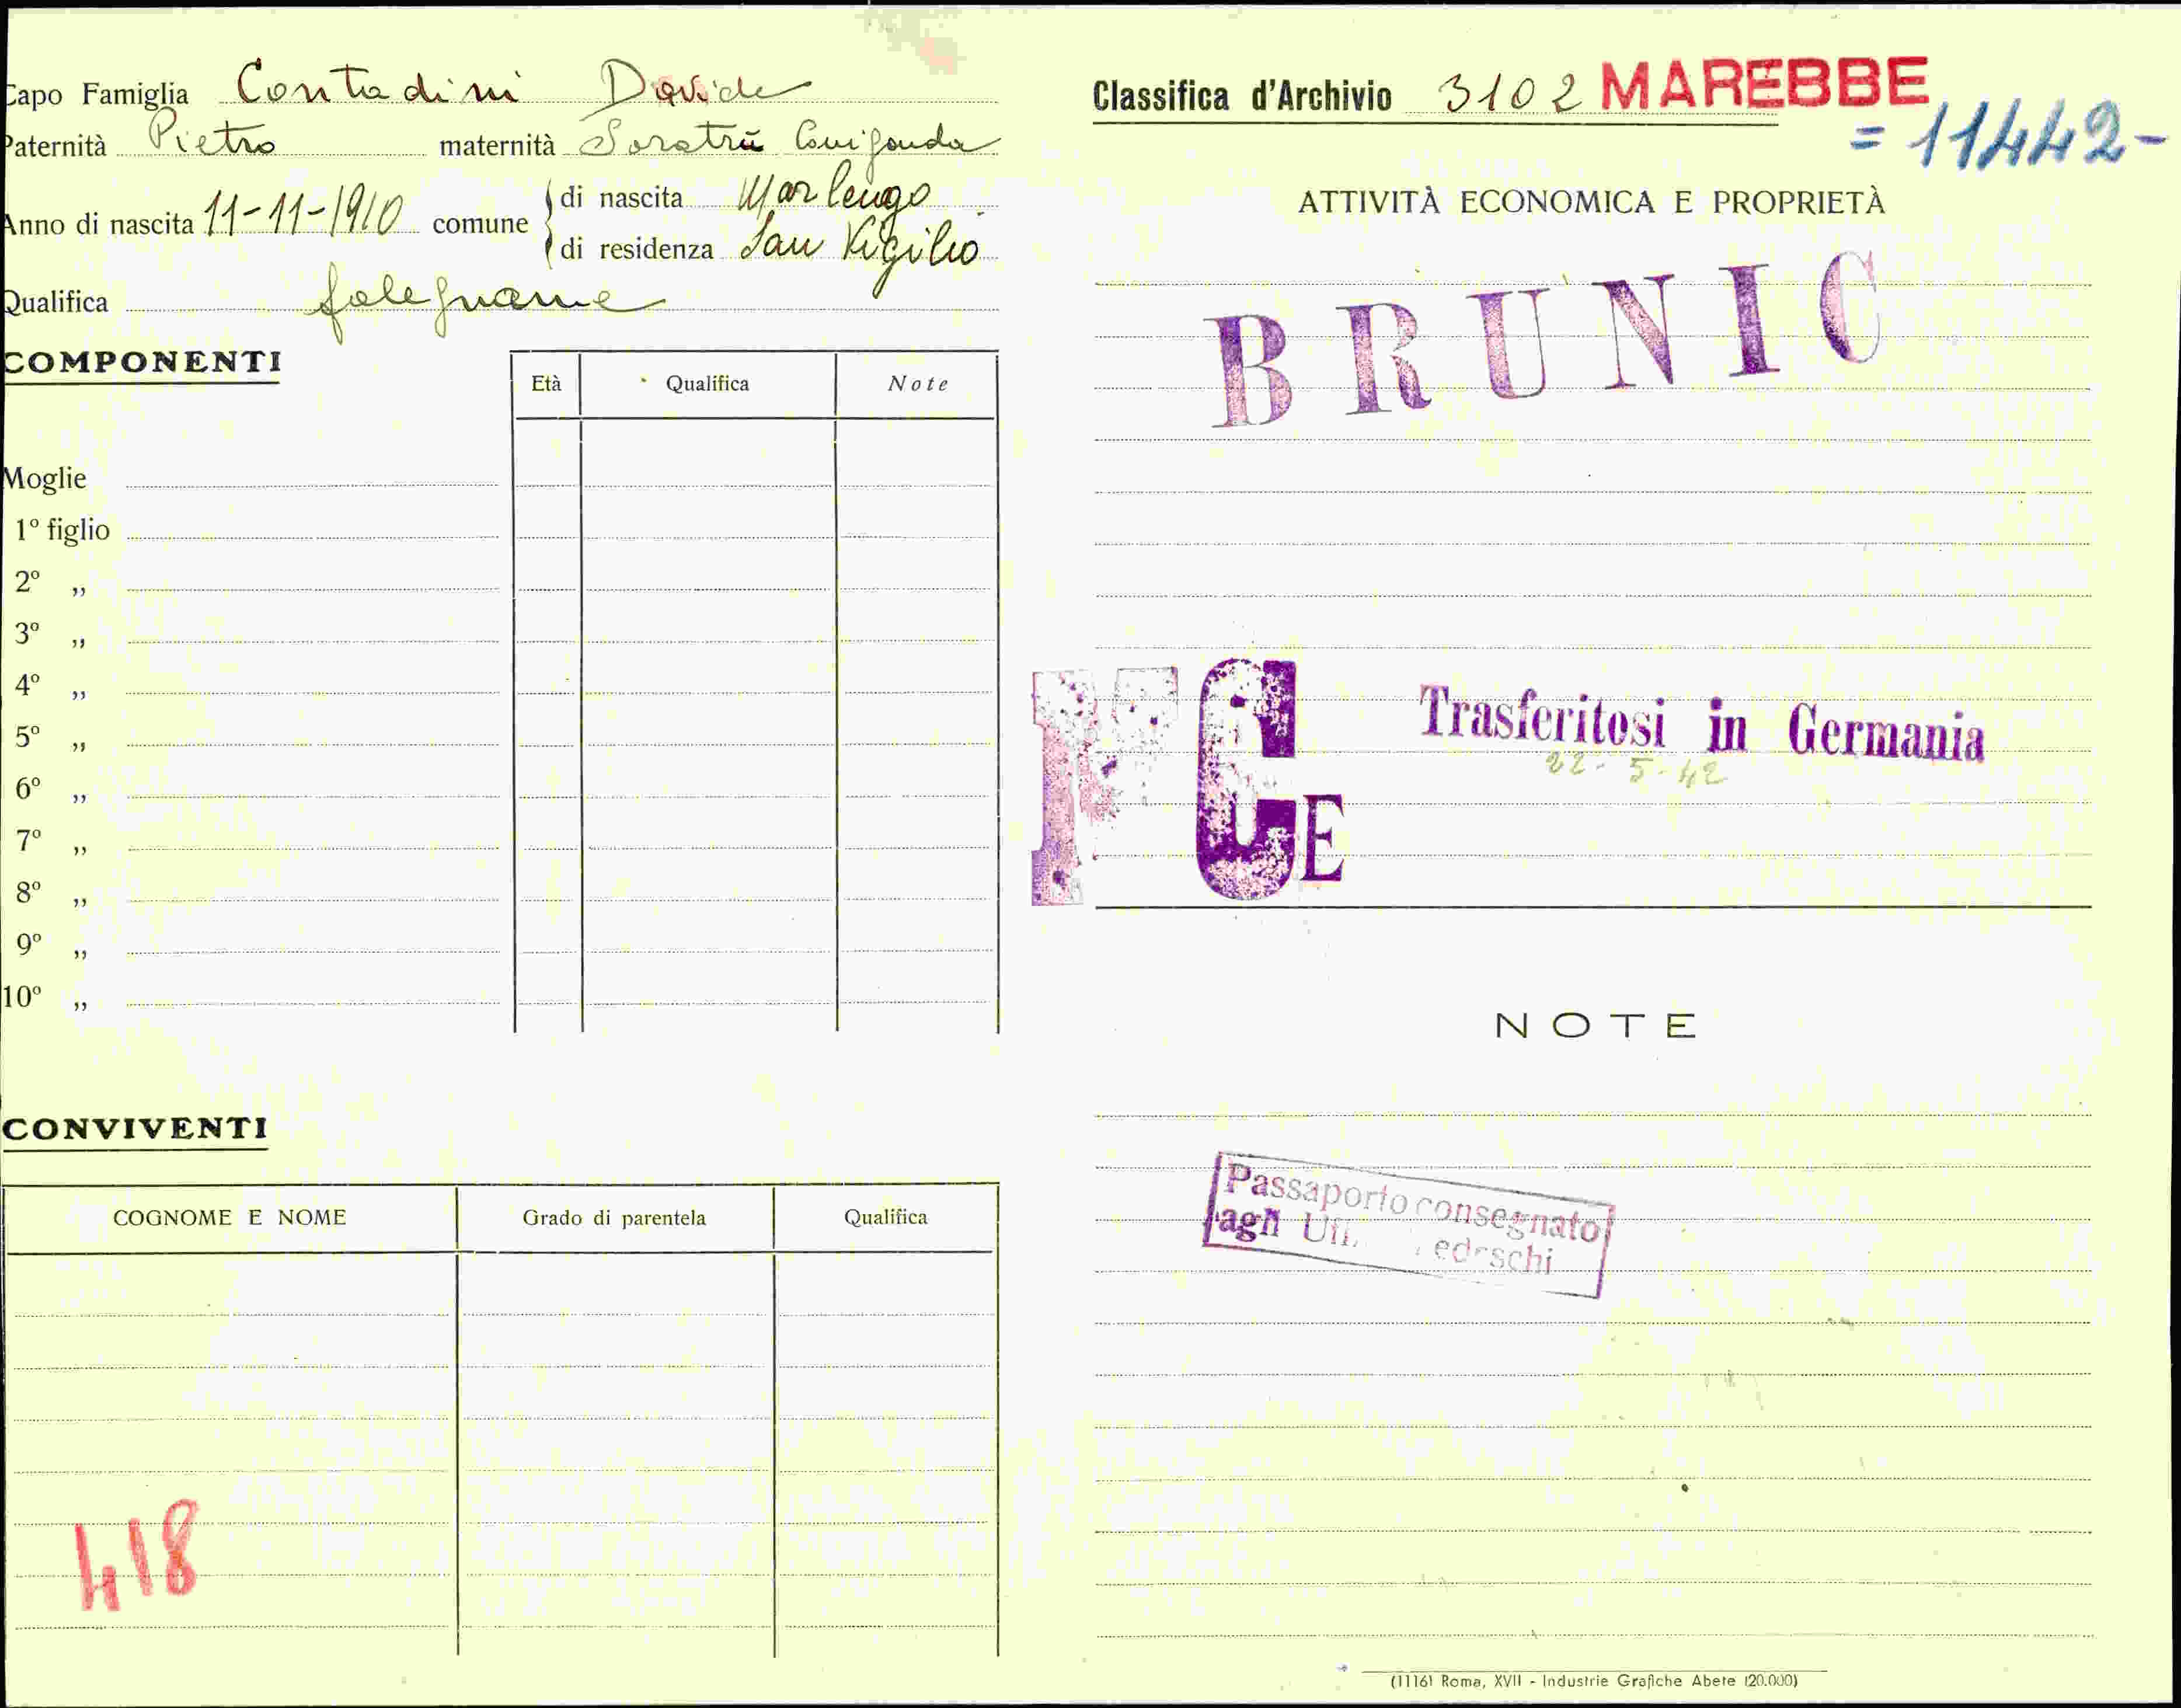 Capo Famiglia Contadini Davide
Paternità Pietro maternità Soratrù Cunigonda
Anno di nascita 11-11-1910 comune di nascita Marlengo
di residenza San Vigilio
Qualifica falegname
COMPONENTI
Età Qualifica Note
Moglie
1º figlio
2º „
3º „
4º „
5º „
6º „
7º „
8º „
9º „
10º „
CONVIVENTI
COGNOME E NOME Grado di parentela Qualifica
418
Classifica d'Archivio 3102 MAREBBE
= 11442-
ATTIVITÀ ECONOMICA E PROPRIETÀ
BRUNIC
Trasferitosi in Germania
22-5-42
E
NOTE
Passaporto consegnato
agli Uff. Tedeschi
(1116) Roma, XVII - Industrie Grafiche Abete (20.000)